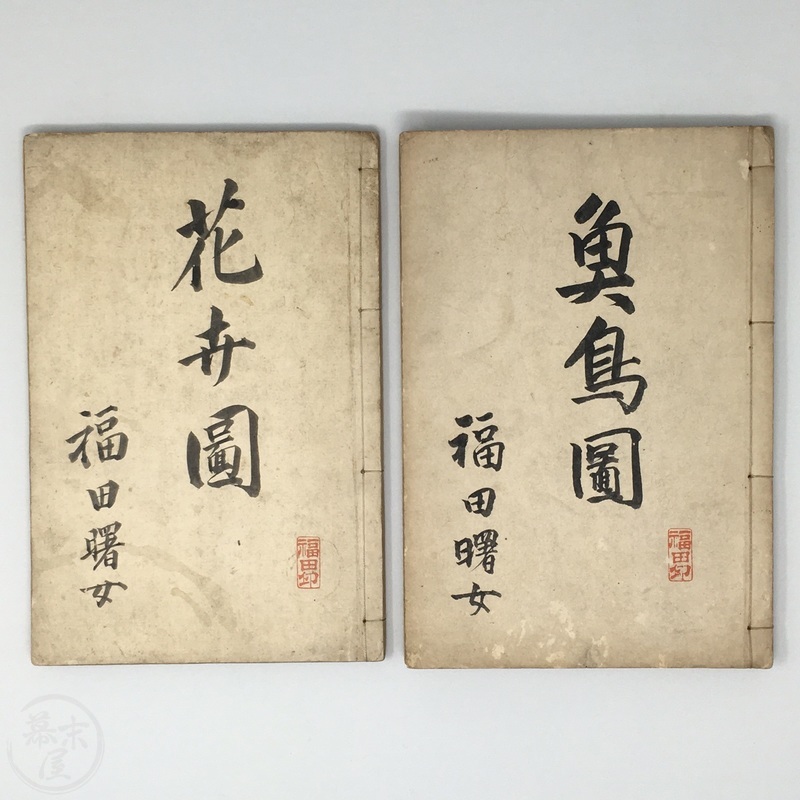 魚鳥圖
福田曙女
福田印
花卉圖
福田曙女
福田印
幕末屋